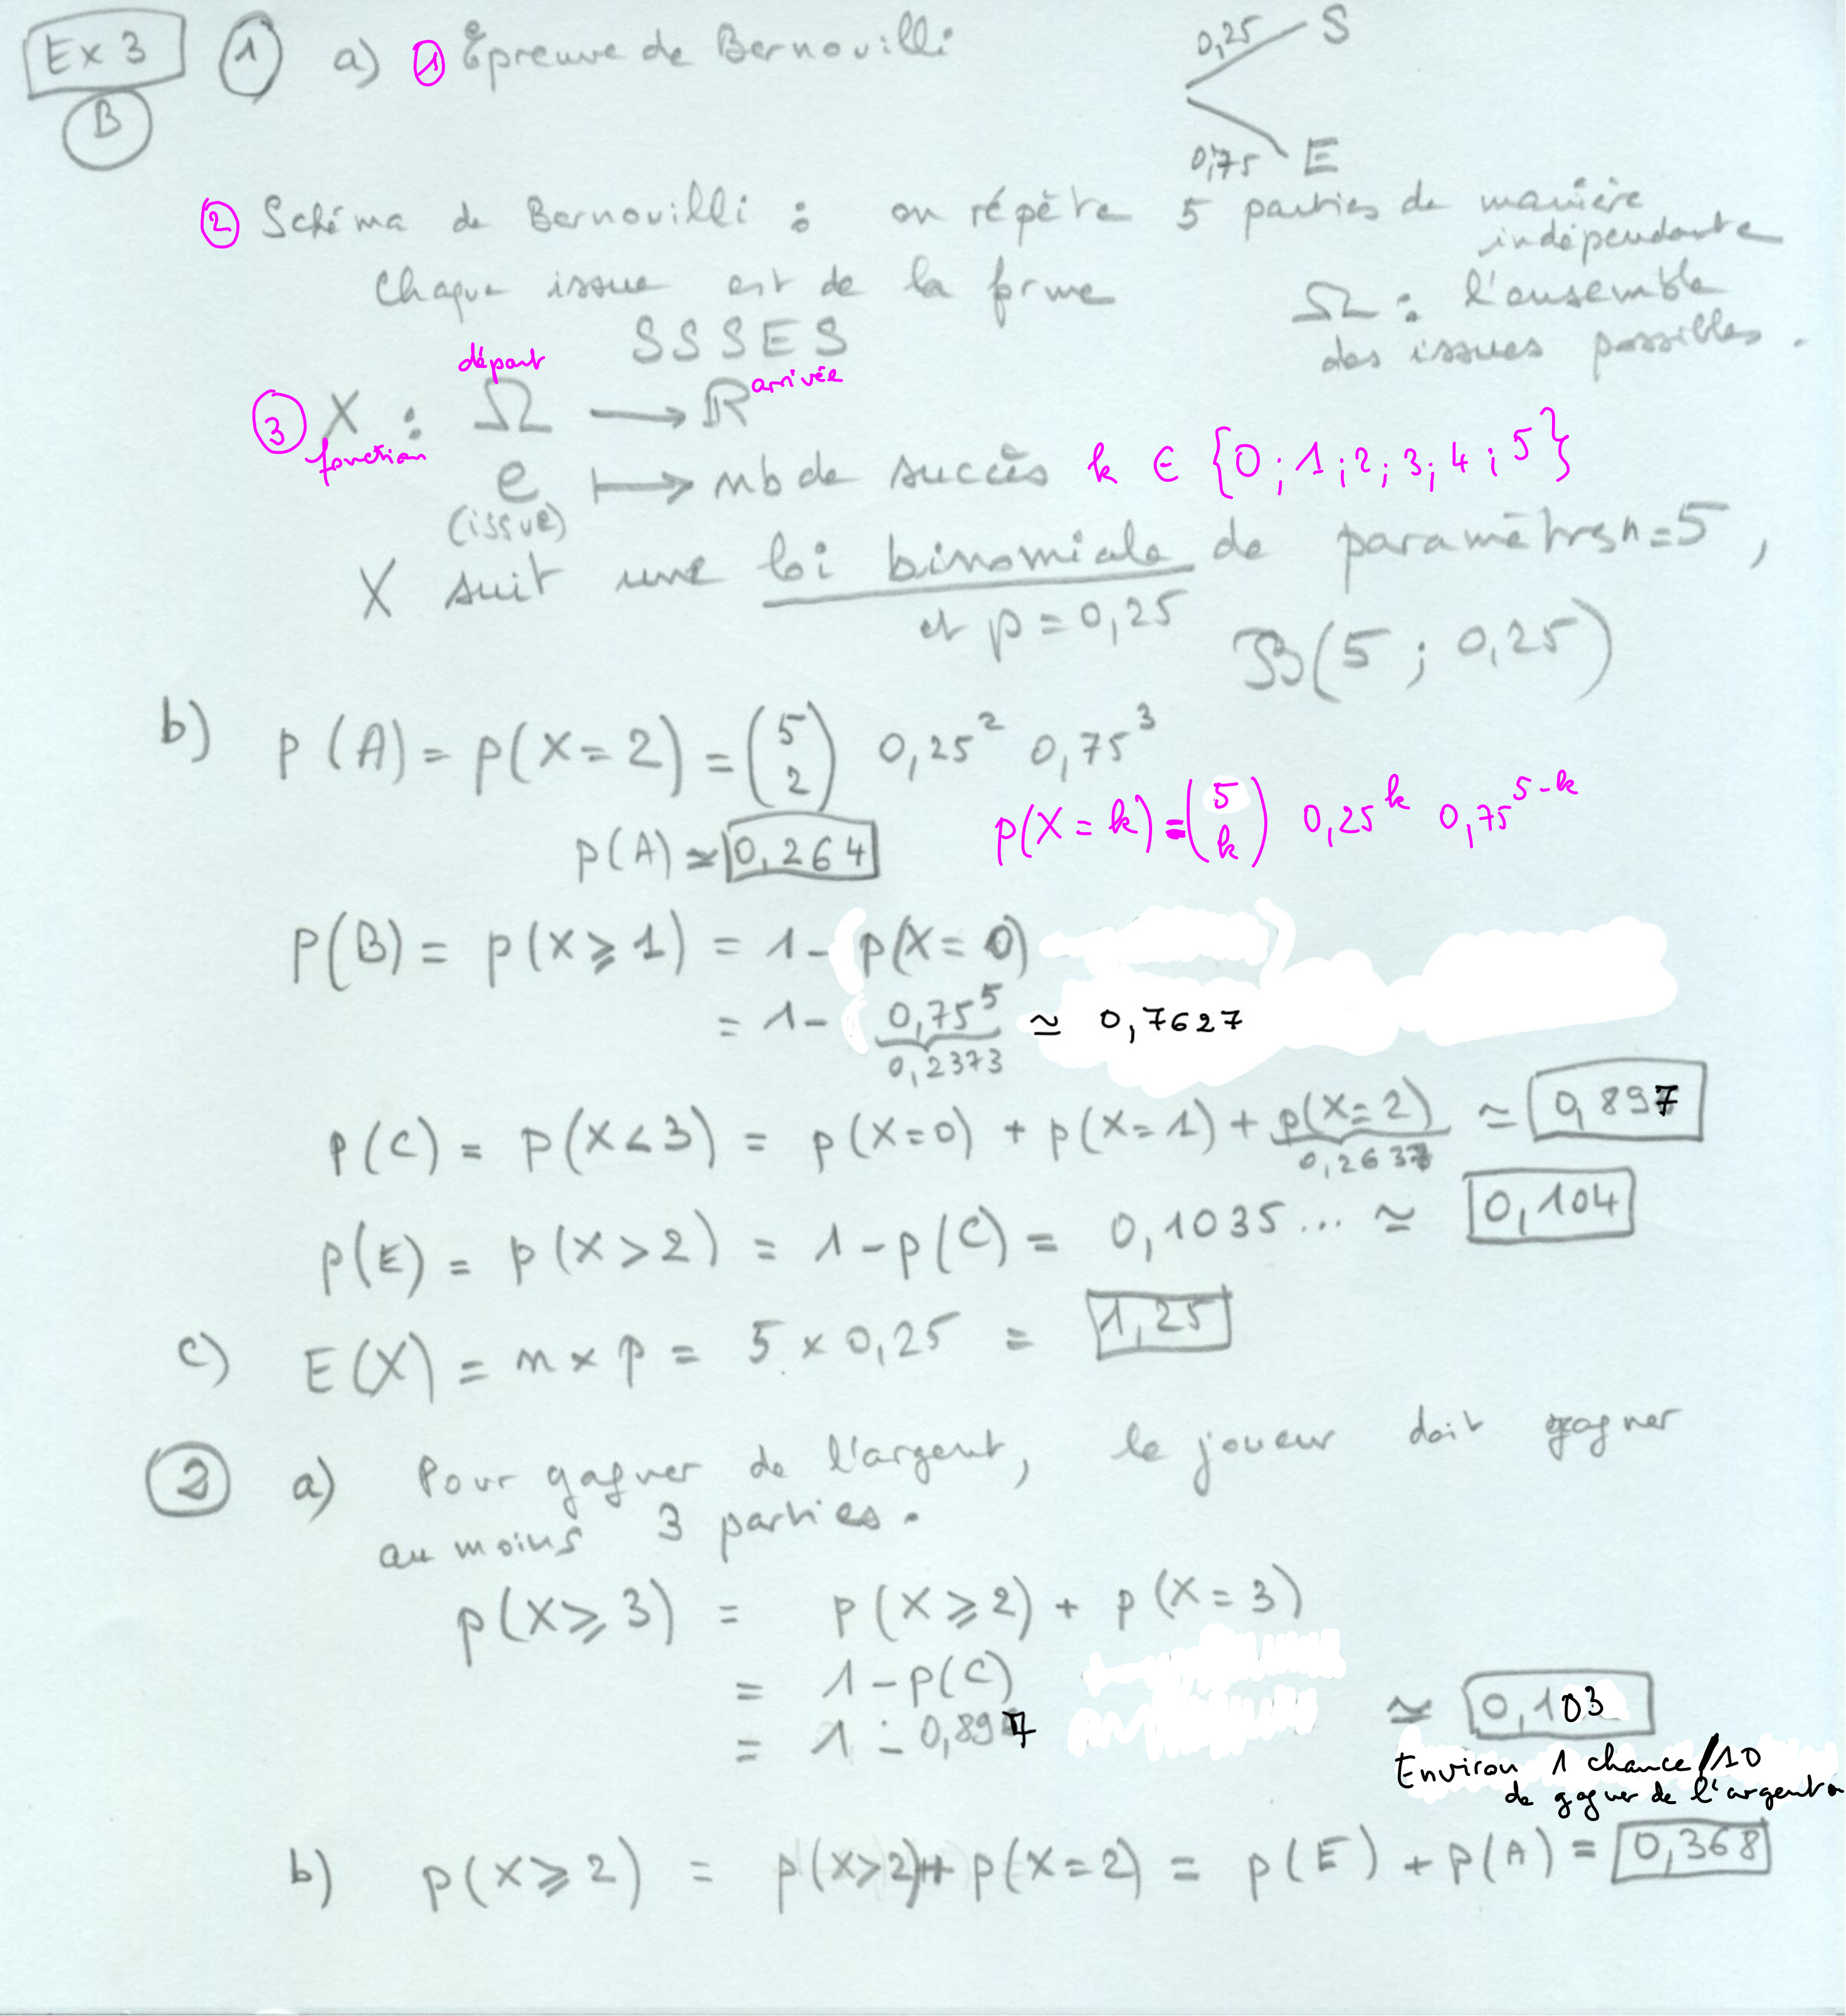 Ex 3 1 a) 1 Épreuve de Bernouilli
0,25 S
B
0,75 E
2 Schéma de Bernouilli : on répète 5 parties de manière
indépendante
Chaque issue est de la forme
Ω : l'ensemble
des issues possibles.
SSSES
départ
arrivée
3 X : Ω ⟶ ℝ
fonction
e ⟼ nb de succès k ∈ {0 ; 1 ; 2 ; 3 ; 4 ; 5}
(issue)
X suit une loi binomiale de paramètres n = 5,
et p = 0,25
B(5 ; 0,25)
b) p(A) = p(X = 2) = (5 2) 0,25² 0,75³
p(X = k) = (5 k) 0,25^k 0,75^(5-k)
p(A) ≃ 0,264
p(B) = p(X ⩾ 1) = 1 - p(X = 0)
= 1 - 0,75⁵ ≃ 0,7627
0,2373
p(C) = p(X < 3) = p(X = 0) + p(X = 1) + p(X = 2) ≃ 0,897
0,2637
p(E) = p(X > 2) = 1 - p(C) = 0,1035... ≃ 0,104
c) E(X) = n × p = 5 × 0,25 = 1,25
2 a) Pour gagner de l'argent, le joueur doit gagner
au moins 3 parties.
p(X ⩾ 3) = p(X ⩾ 2) + p(X = 3)
= 1 - p(C)
= 1 - 0,897 ≃ 0,103
Environ 1 chance/10
de gagner de l'argent
b) p(X ⩾ 2) = p(X > 2) + p(X = 2) = p(E) + p(A) = 0,368